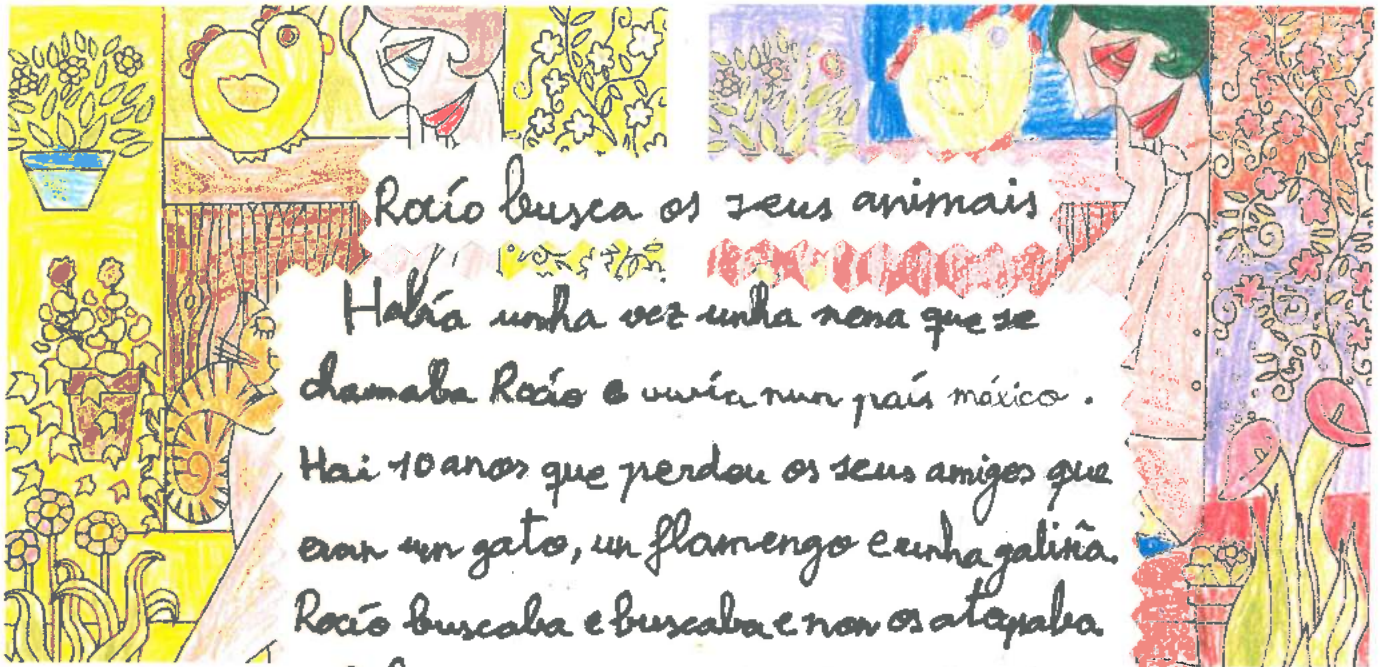 Rocío busca os seus animais
Había unha vez unha nena que se
chamaba Rocío e vivía nun país máxico.
Hai 10 anos que perdeu os seus amigos que
eran un gato, un flamengo e unha galiña.
Rocío buscaba e buscaba e non os atopaba